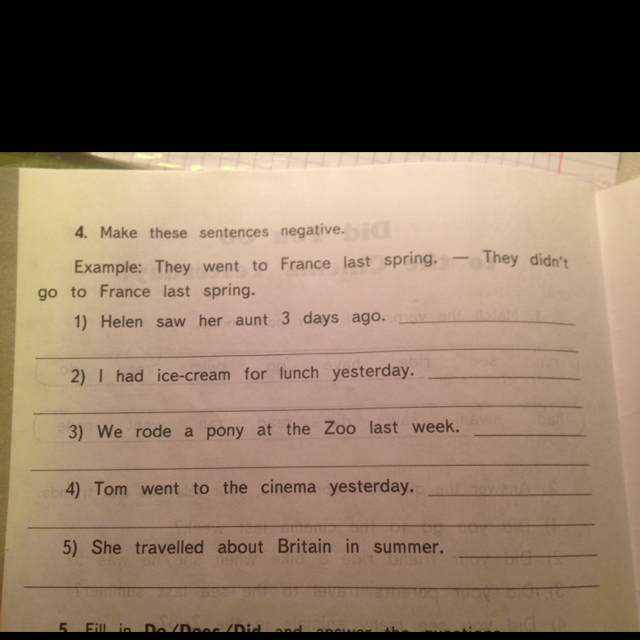 4. Make these sentences negative.
Example: They went to France last spring. — They didn't
go to France last spring.
1) Helen saw her aunt 3 days ago.
2) I had ice-cream for lunch yesterday.
3) We rode a pony at the Zoo last week.
4) Tom went to the cinema yesterday.
5) She travelled about Britain in summer.
5. Fill in Do/Does/Did and answer the questions